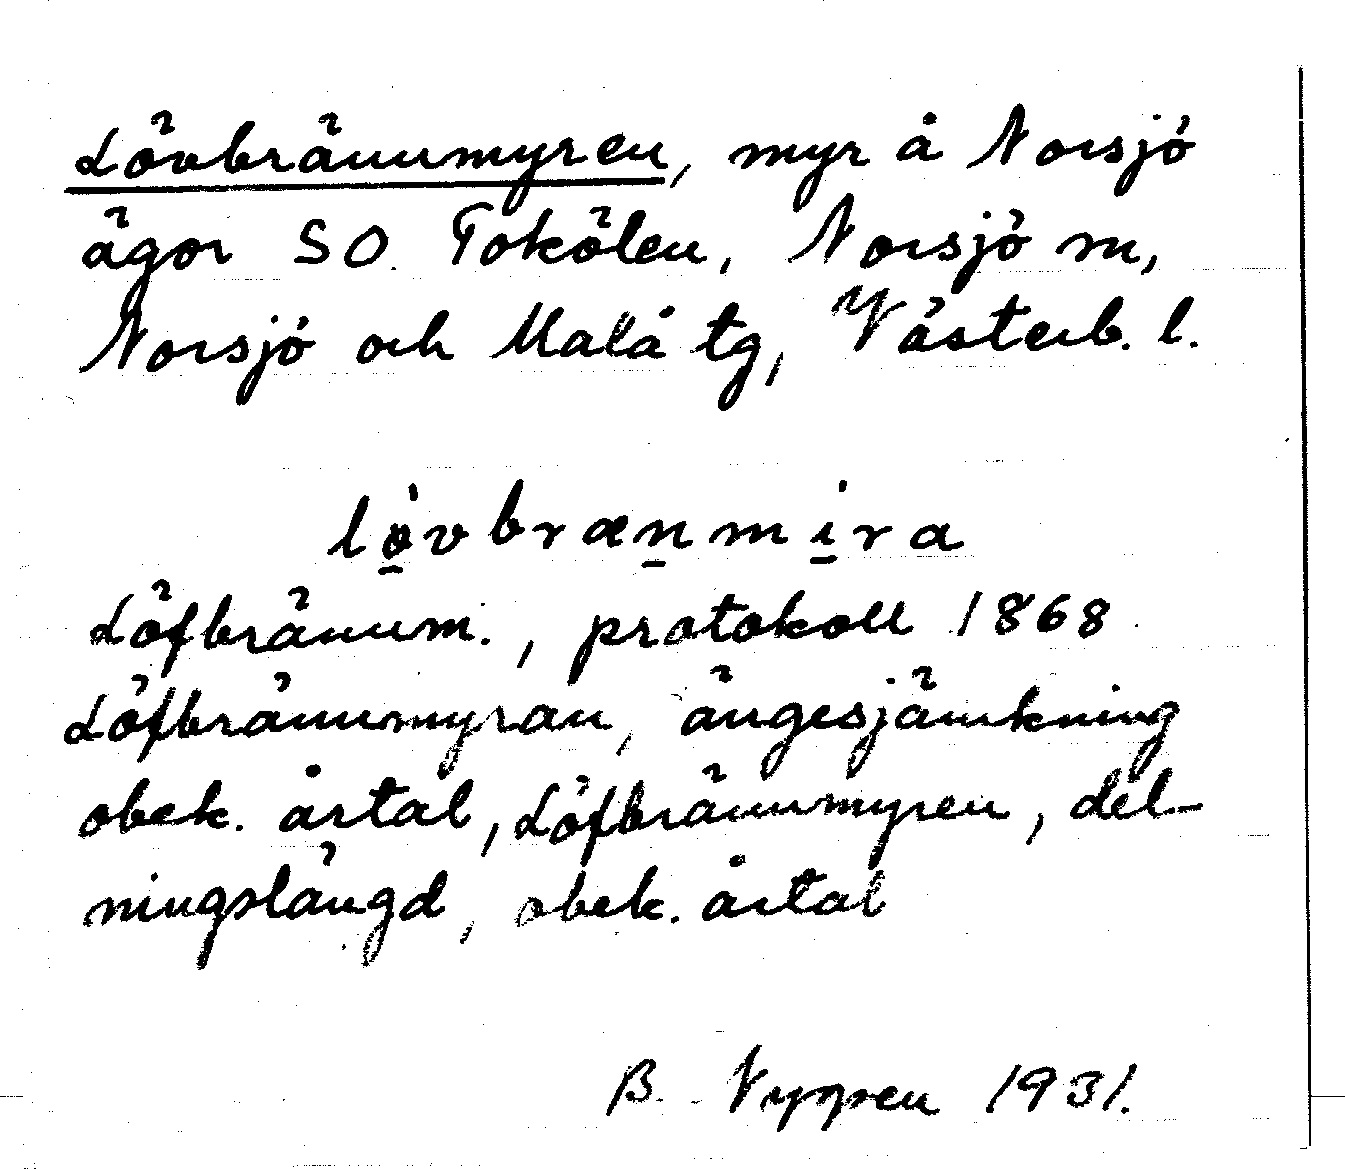 Lövbrännmyren, myr å Norsjö
ägor SO Tokölen, Norsjö sn,
Norsjö och Malå tg, Västerb. l.
lövbrænmira
Löfbrännm., protokoll 1868
Löfbrännmyran, ängesjämkning
obek. årtal, Löfbrännmyren, del-
ningslängd, obek. årtal
B. Nygren 1931.